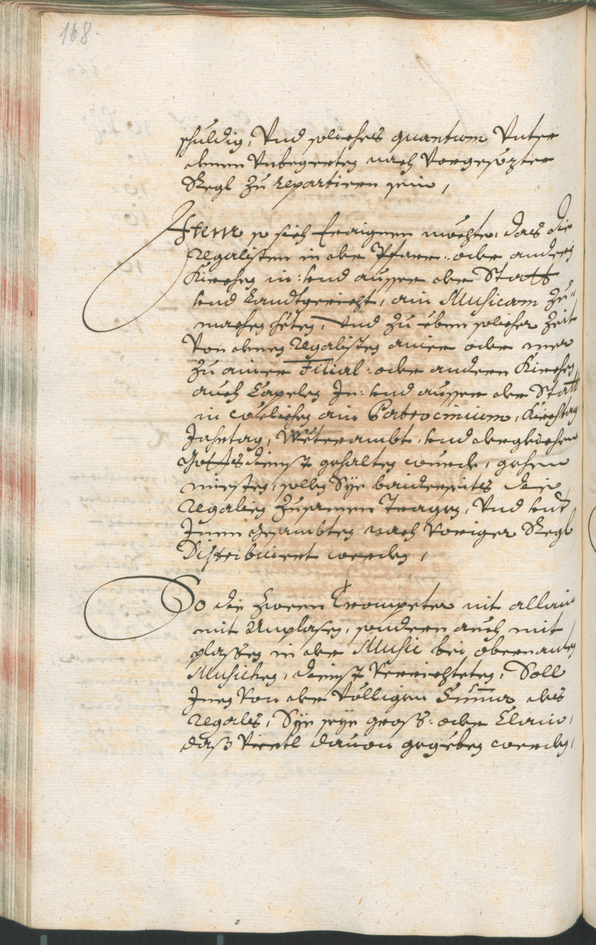 168.
schuldig, Vnd solches quantum Vnter
denen Vnbegerten nach Vorgesözter
Regl zu repartiren sein,
Item so sich eraignen möchte, das die
Regalisten in der Pfarr: oder andern
Kirchen in: vnd ausser der Statt
vnd Landtgericht, ain Musicam zu
machen heten, Vnd zu eben solcher Zeit
Von denen Regalisten ainer oder mer
zu ainer Filial: oder anderen Kirchen
auch Capelen In: vnd ausser der Statt
in welchen ain Patrocinium, Kirchtag
Jahrtag, Ambt vnd dergleichen
Gottsdienst gehalten wurde, gehen
miesten, sollen Sye beederseits die
Regalien zusamen Tragen, Vnd vnter
Inen gesambten nach Voriger Regl
Distribuiert werden,
So die zween Trompeter nit allain
mit Anplasen, sondern auch mit
plassen in der Music bei obernanten
Musichen, dienst Verrichteten, Soll
Inen Von der Völligen Summa des
Regals, Sye seye groß: oder Clain,
daß Viertl dauon gegeben werden,